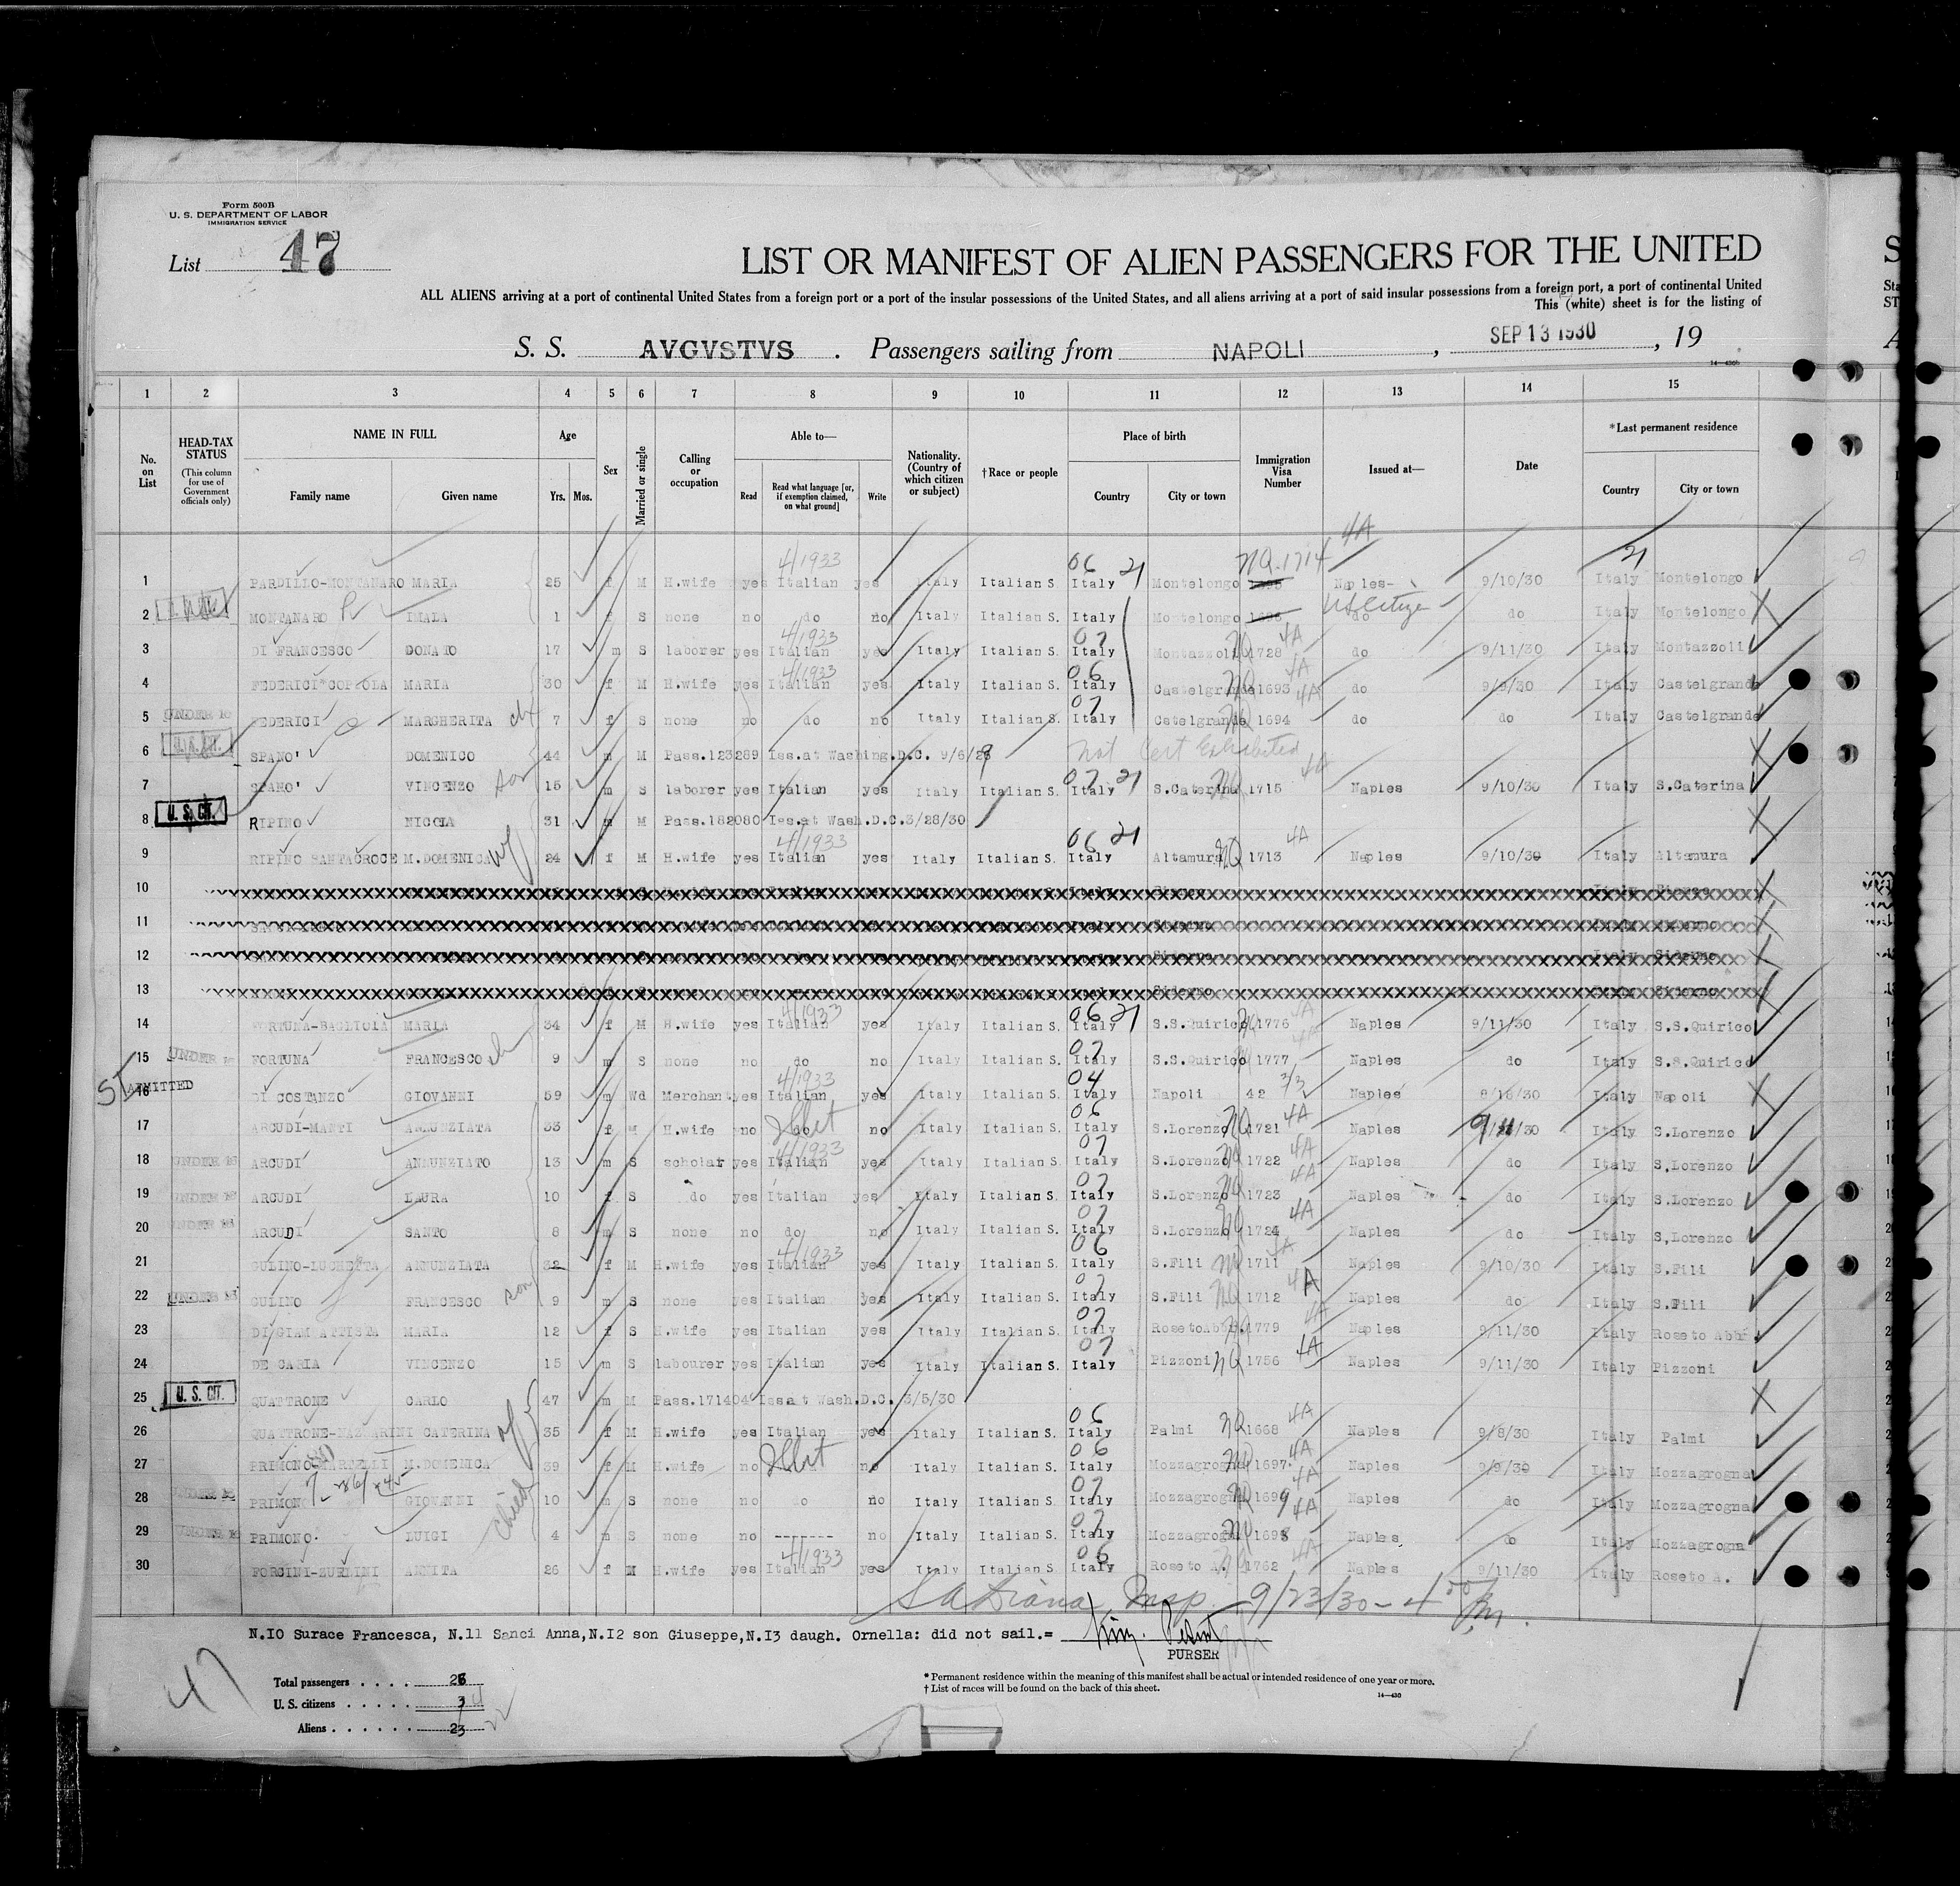 Form 500B
U. S. DEPARTMENT OF LABOR
IMMIGRATION SERVICE
List 47
LIST OR MANIFEST OF ALIEN PASSENGERS FOR THE UNITED
ALL ALIENS arriving at a port of continental United States from a foreign port or a port of the insular possessions of the United States, and all aliens arriving at a port of said insular possessions from a foreign port, a port of continental United
This (white) sheet is for the listing of
S. S. AVGVSTVS . Passengers sailing from NAPOLI , SEP 13 1930 , 19
14—430b
1 2 3 4 5 6 7 8 9 10 11 12 13 14 15
No. on List
HEAD-TAX STATUS (This column for use of Government officials only)
NAME IN FULL Family name Given name
Age Yrs. Mos.
Sex
Married or single
Calling or occupation
Able to— Read Read what language [or, if exemption claimed, on what ground] Write
Nationality. (Country of which citizen or subject)
†Race or people
Place of birth Country City or town
Immigration Visa Number
Issued at—
Date
*Last permanent residence Country City or town
4A
4/1933 06 21 NQ-1714 21
1 PARDILLO-MONTANARO MARIA 25 f M H.wife yes Italian yes Italy Italian S. Italy Montelongo Naples- 9/10/30 Italy Montelongo
2 MONTANARO IMALA 1 f S none no do no Italy Italian S. Italy Montelongo US Citizen do do Italy Montelongo
3 DI FRANCESCO DONATO 17 m S laborer yes Italian 4/1933 yes Italy Italian S. 07 Italy Montazzoli NQ 1728 4A do 9/11/30 Italy Montazzoli
4 FEDERICI COPPOLA MARIA 30 f M H.wife yes Italian 4/1933 yes Italy Italian S. 06 Italy Castelgrande NQ 1693 4A do 9/9/30 Italy Castelgrande
5 UNDER 16 FEDERICI MARGHERITA ch 7 f S none no do no Italy Italian S. 07 Italy Catelgrande NQ 1694 4A do do Italy Castelgrande
6 U. S. CIT. SPANO' DOMENICO 44 m M Pass.123289 Iss.at Washing.D.C. 9/6/29 Not Cert Exhibited
7 SPANO' VINCENZO son 15 m S laborer yes Italian yes Italy Italian S. 07 21 Italy S.Caterina NQ 1715 4A Naples 9/10/30 Italy S.Caterina
8 U. S. CIT. RIPINO NICOLA 31 m M Pass.182080 Iss.at Wash.D.C.3/28/30
9 RIPINO SANTACROCE M.DOMENICA wf 24 f M H.wife yes Italian 4/1933 yes Italy Italian S. 06 21 Italy Altamura NQ 1713 4A Naples 9/10/30 Italy Altamura
10
11
12
13
14 FORTUNA-BAGLIOIA MARIA 34 f M H.wife yes Italian 4/1933 yes Italy Italian S. 06 21 Italy S.S.Quirico NQ 1776 4A Naples 9/11/30 Italy S.S.Quirico
15 UNDER 16 FORTUNA FRANCESCO ch 9 m S none no do no Italy Italian S. 07 Italy S.S.Quirico 1777 4A Naples do Italy S.S.Quirico
16 ADMITTED DI COSTANZO GIOVANNI 59 m Wd Merchant yes Italian 4/1933 yes Italy Italian S. 04 Italy Napoli 42 3/3 Naples Italy Napoli
17 ARCUDI-MANTI ANNUNZIATA 33 f M H.wife no do no Italy Italian S. 06 Italy S.Lorenzo NQ 1721 4A Naples 9/11/30 Italy S.Lorenzo
18 UNDER 16 ARCUDI ANNUNZIATO 13 m S scholar yes Italian 4/1933 yes Italy Italian S. 07 Italy S.Lorenzo NQ 1722 4A Naples do Italy S,Lorenzo
19 UNDER 16 ARCUDI LAURA 10 f S do yes Italian yes Italy Italian S. 07 Italy S.Lorenzo NQ 1723 4A Naples do Italy S.Lorenzo
20 UNDER 16 ARCUDI SANTO 8 m S none no do no Italy Italian S. 07 Italy S.Lorenzo NQ 1724 4A Naples do Italy S,Lorenzo
21 GULINO-LUCHETTA ANNUNZIATA 32 f M H.wife yes Italian 4/1933 yes Italy Italian S. 06 Italy S.Fili NQ 1711 4A Naples 9/10/30 Italy S.Fili
22 UNDER 16 GULINO FRANCESCO son 9 m S none yes Italian yes Italy Italian S. 07 Italy S.Fili NQ 1712 4A Naples do Italy S.Fili
23 DI GIAMBATTISTA MARIA 12 f S H.wife yes Italian yes Italy Italian S. 07 Italy RosetoAbb. 1779 4A Naples 9/11/30 Italy Roseto Abb.
24 DE CARIA VINCENZO 15 m S labourer yes Italian yes Italy Italian S. 07 Italy Pizzoni NQ 1756 4A Naples 9/11/30 Italy Pizzoni
25 U. S. CIT. QUATTRONE CARLO 47 m M Pass.171404 Issat Wash.D.C. 3/5/30
26 QUATTRONE-NAZZARINI CATERINA wf 35 f M H.wife yes Italian yes Italy Italian S. 06 Italy Palmi NQ 1668 4A Naples 9/8/30 Italy Palmi
27 PRIMONO-MARTELLI M.DOMENICA 39 f M H.wife no no Italy Italian S. 06 Italy Mozzagrogna NQ 1697 4A Naples 9/9/30 Italy Mozzagrogna
28 UNDER 16 PRIMONO GIOVANNI 10 m S none no do no Italy Italian S. 07 Italy Mozzagrogna NQ 1699 4A Naples do Italy Mozzagrogna
29 UNDER 16 PRIMONO LUIGI 4 m S none no ------- no Italy Italian S. 07 Italy Mozzagrogna NQ 1698 4A Naples do Italy Mozzagrogna
30 FORCINI-ZURLINI ANNITA 26 f M H.wife yes Italian 4/1933 yes Italy Italian S. 06 Italy Roseto A. NQ 1762 4A Naples 9/11/30 Italy Roseto A.
Insp. 9/23/30 - 4
N.10 Surace Francesca, N.11 Sanci Anna,N.12 son Giuseppe,N.13 daugh. Ornella: did not sail.=
PURSER
47
Total passengers . . . . 26
U. S. citizens . . . . . 3 4
Aliens . . . . . . 23 22
* Permanent residence within the meaning of this manifest shall be actual or intended residence of one year or more.
† List of races will be found on the back of this sheet.
14—430